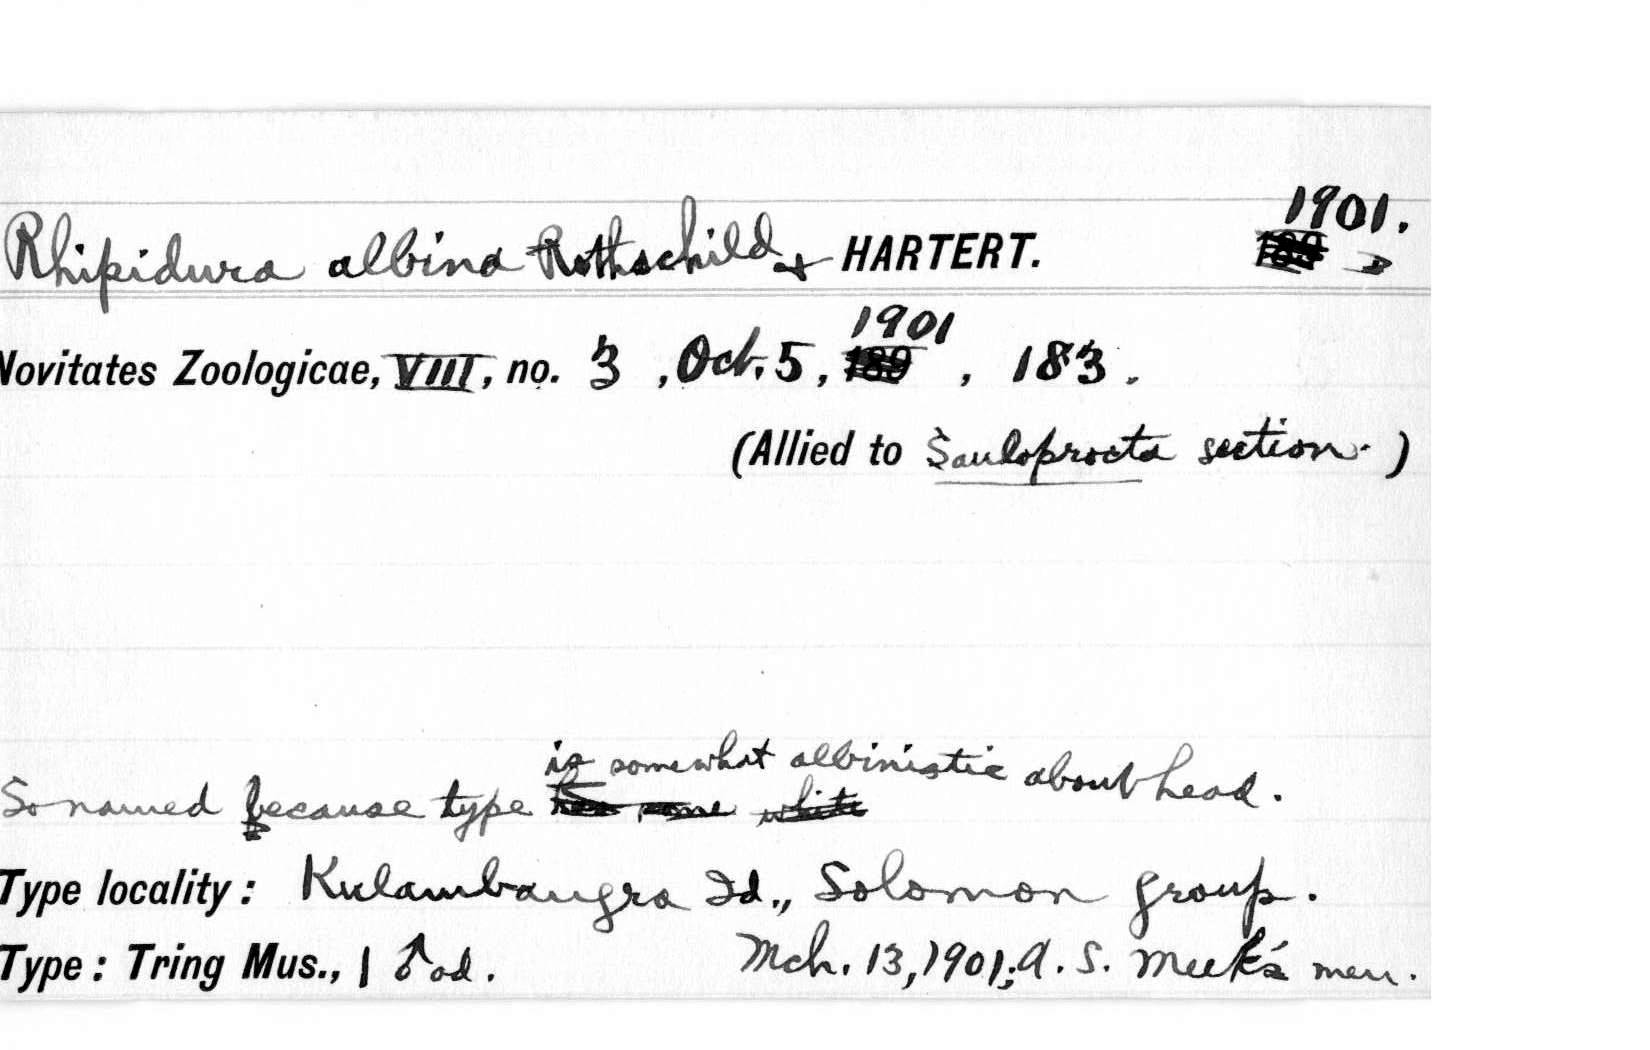 1901.
Rhipidura albina Rothschild & HARTERT. 189
1901
Novitates Zoologicae, VIII, no. 3 , Oct. 5, 189 , 183.
(Allied to Sauloprocta section.)
is somewhat albinistic about head.
So named because type has some white
Type locality: Kulambangra Id., Solomon group.
Type: Tring Mus., 1 ♂ ad. Mch. 13, 1901; A. S. Meek's men.